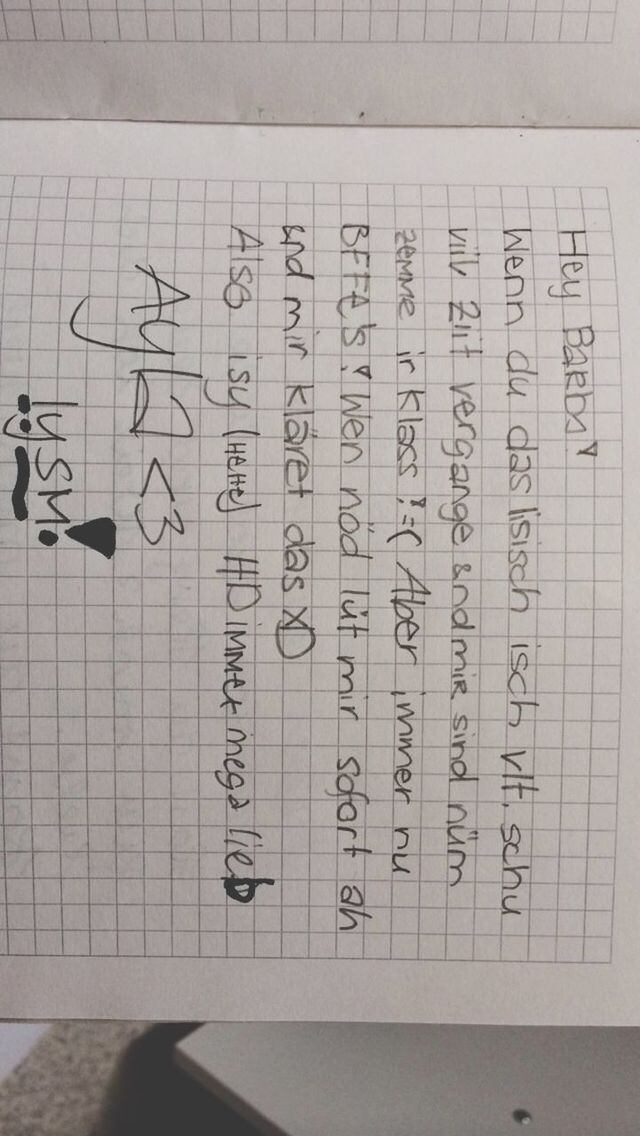 Hey Barbs!
Wenn du das lisisch isch vlt. schu
viil Ziit vergange und mir sind nüm
zemme ir Klass! =( Aber immer nu
BFFE's! Wen nöd lüt mir sofort ah
und mir kläret das XD
Also isy (HEHE) HD immer mega lieb
Ayla <3
lysm!